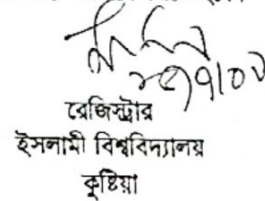 রেজিস্ট্রার
ইসলামী বিশ্ববিদ্যালয়
কুষ্টিয়া